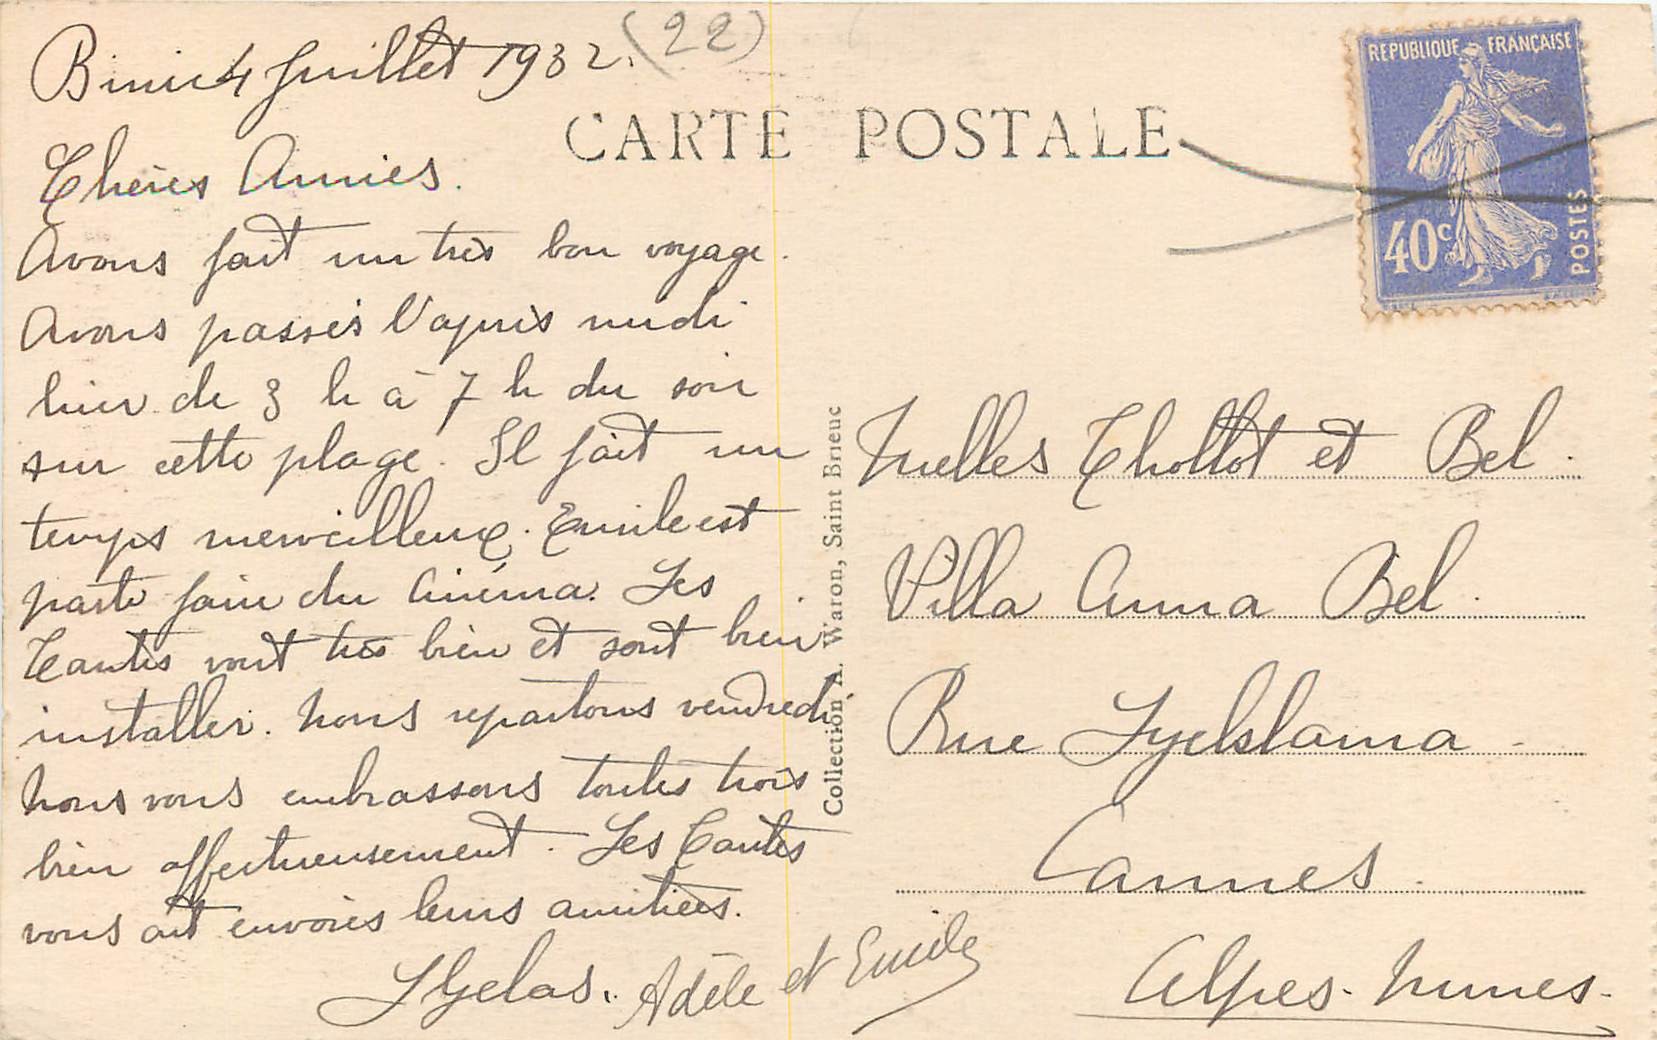 Binic 4 Juillet 1932. (22)
Chères Amies.
Avons fait un très bon voyage.
Avons passés l'après midi
hier de 3 h à 7 h du soir
sur cette plage. Il fait un
temps merveilleux. Emile est
parti faire du cinéma. Les
Tantes vont très bien et sont bien
installer. nous repartons vendredi
nous vous embrassons toutes trois
bien affectueusement. Les Tantes
vous ont envoiés leurs amitiées.
Adèle et Emile
CARTE POSTALE
REPUBLIQUE FRANÇAISE
40c
POSTES
Collection A. Waron, Saint Brieuc
Melles Chollot et Bel.
Villa Anna Bel.
Rue
Cannes.
Alpes-